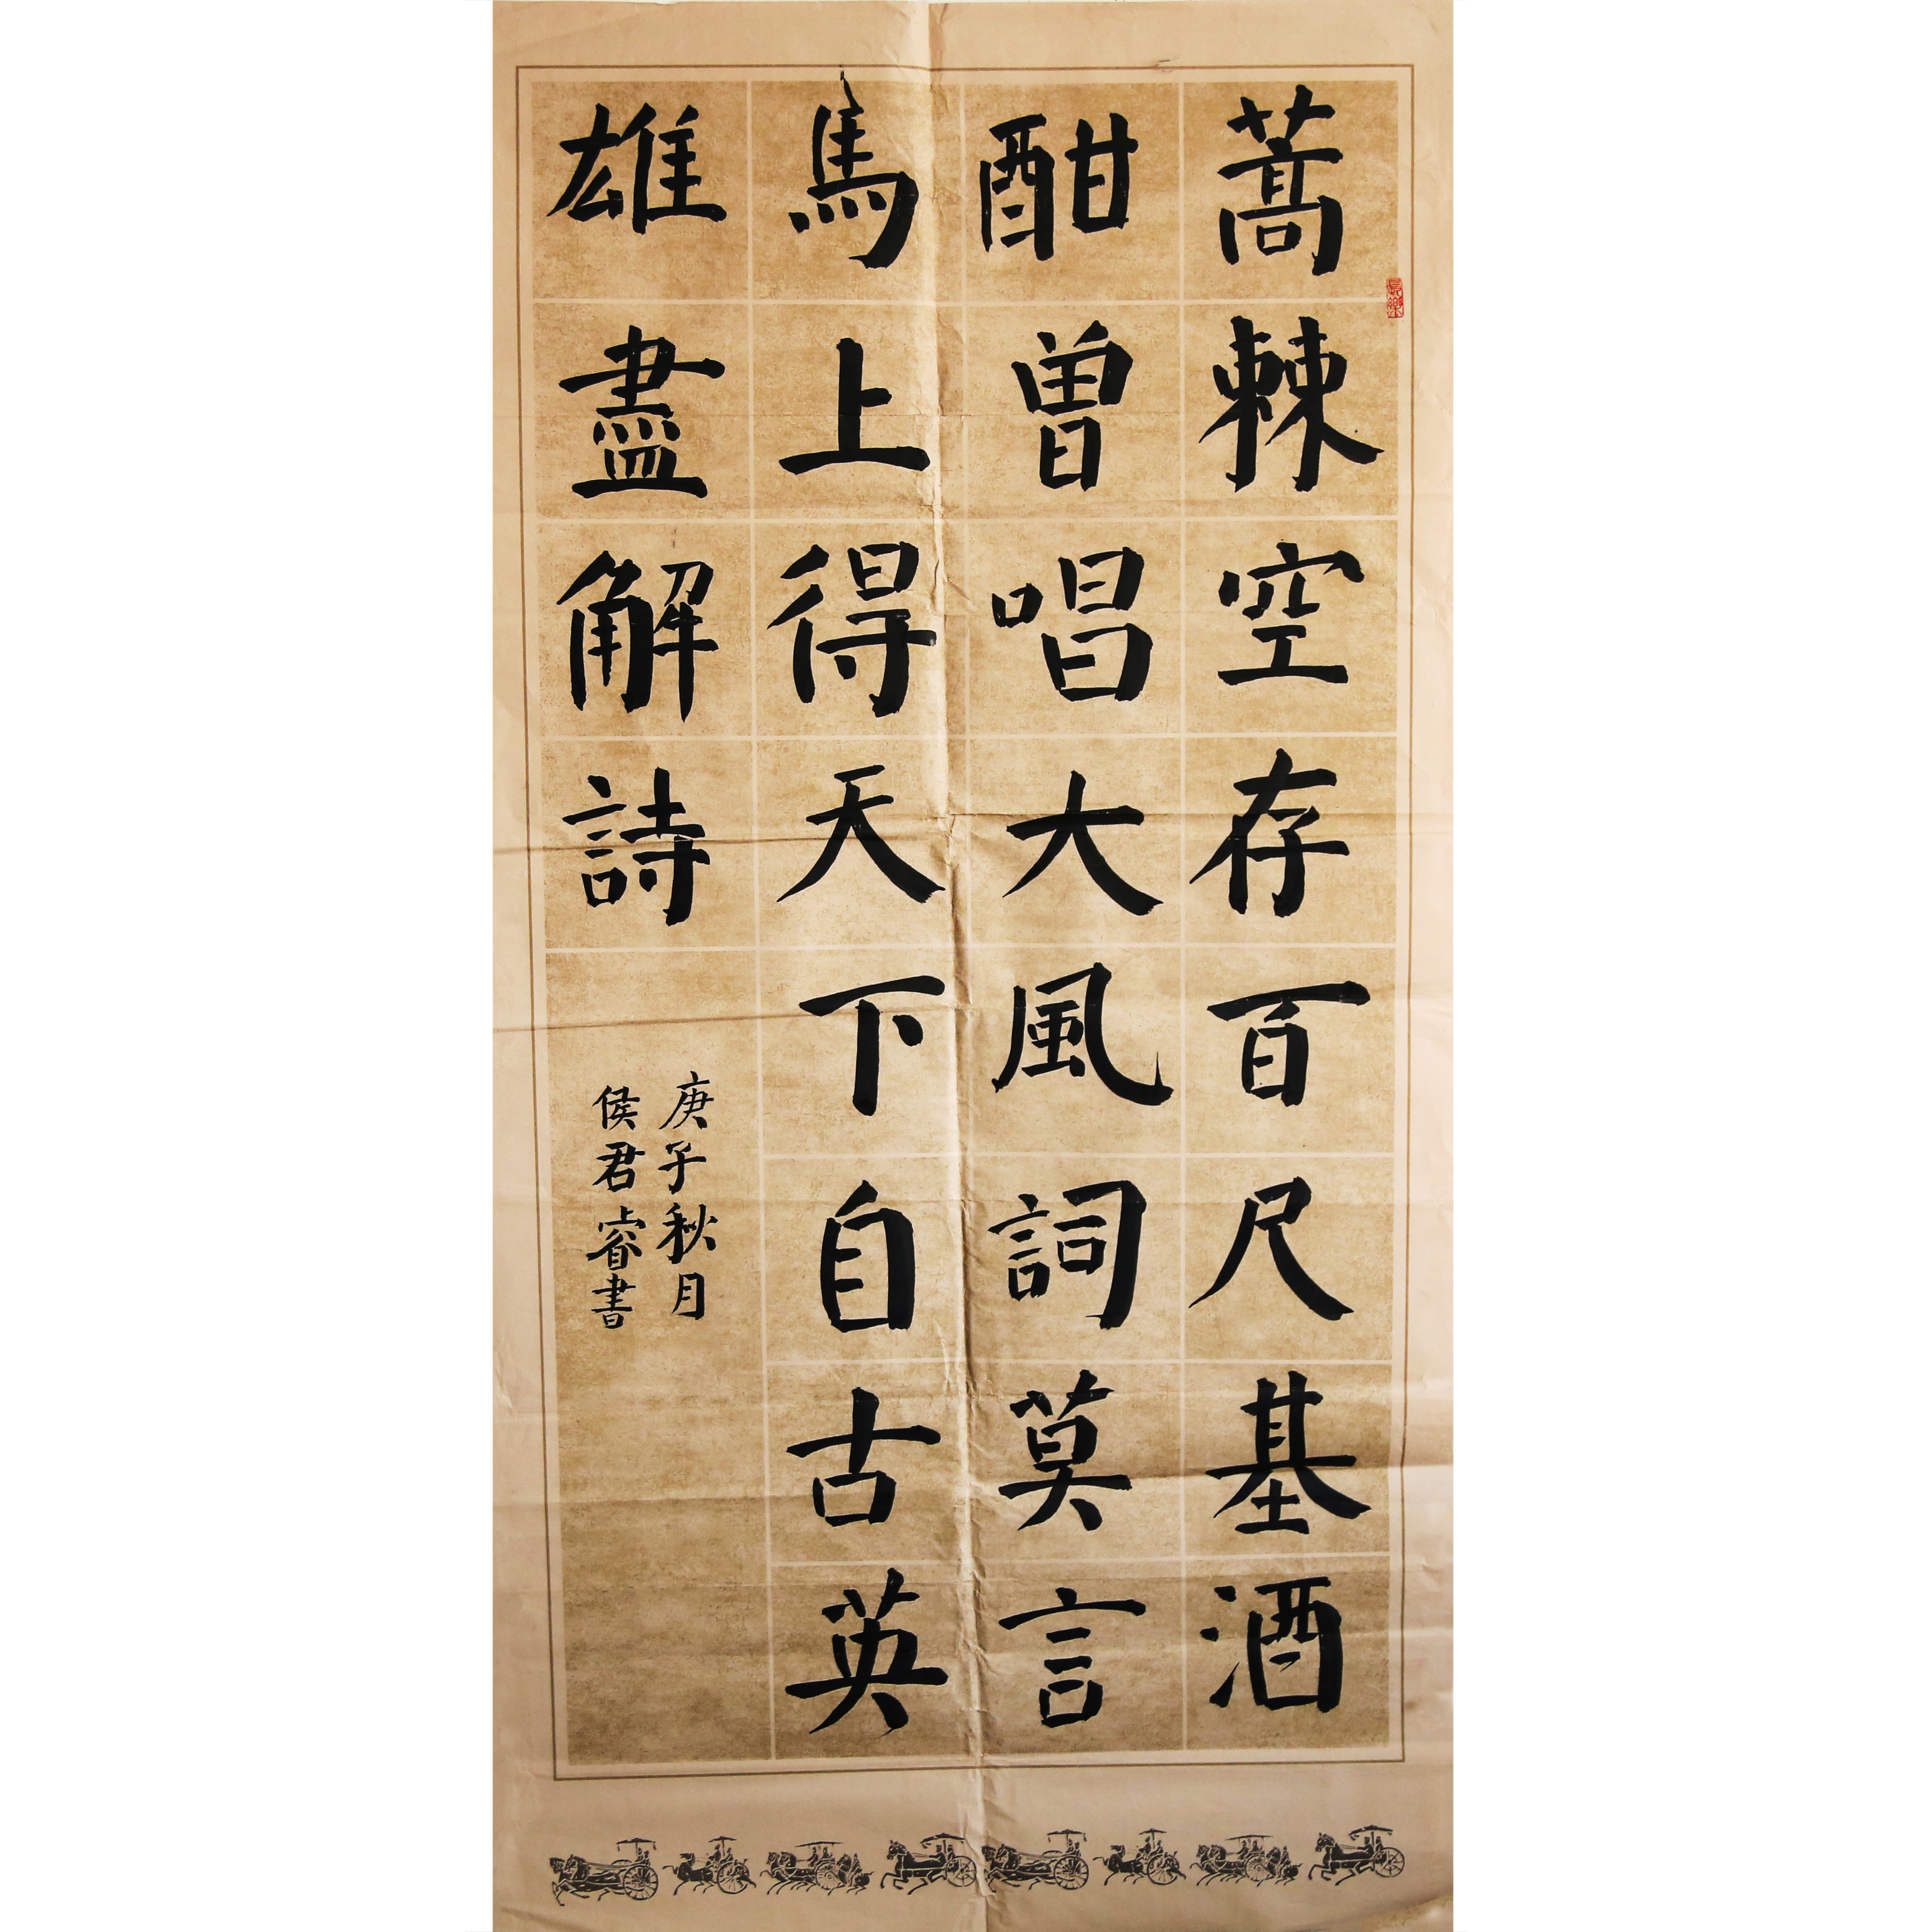 蒿棘空存百尺基酒
酣曽唱大風詞莫言
馬上得天下自古英
雄盡解詩
庚子秋月
侯君睿書
長樂